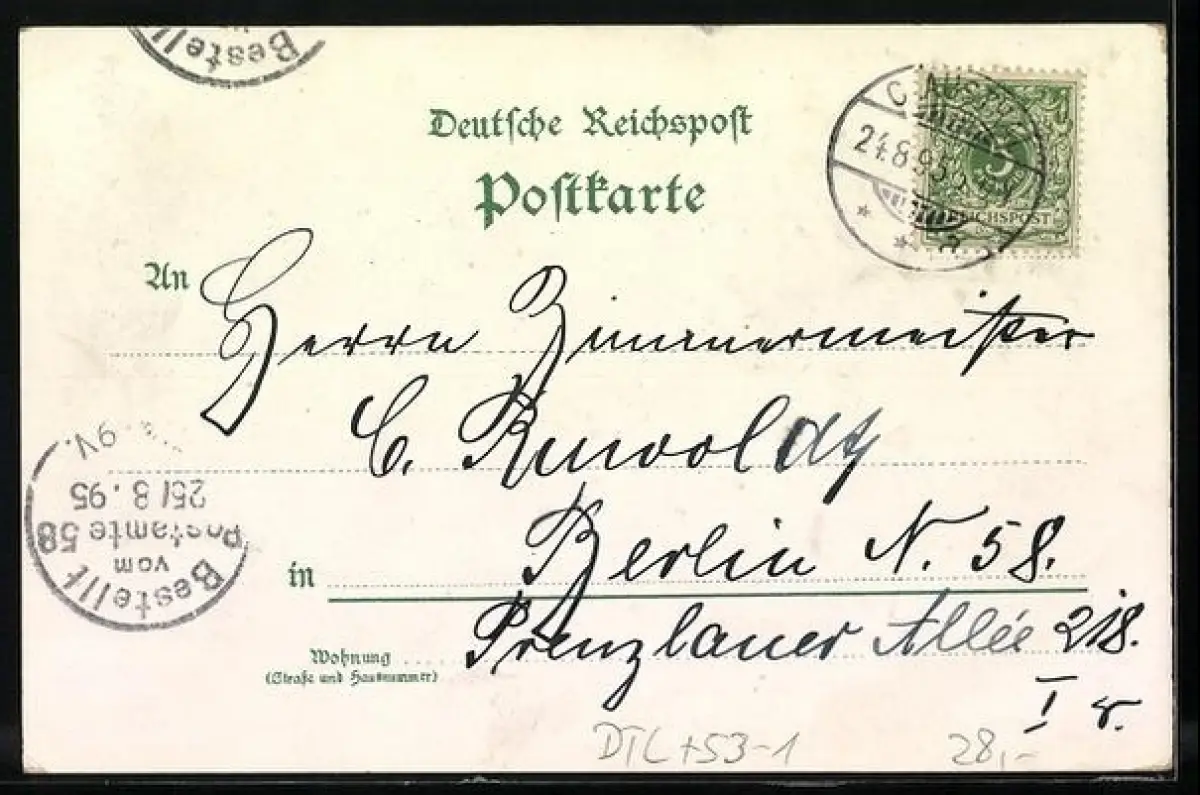 Bestellt
Deutsche Reichspost
Postkarte
24.8.95
5
REICHSPOST
An
Herrn Zimmermeister
C.
9V.
25/8.95
Postamte 58
vom
Bestellt
in
Berlin N. 58.
Wohnung
(Straße und Hausnummer)
Prenzlauer Allée 218.
I r.
DTL+53-1
28,-